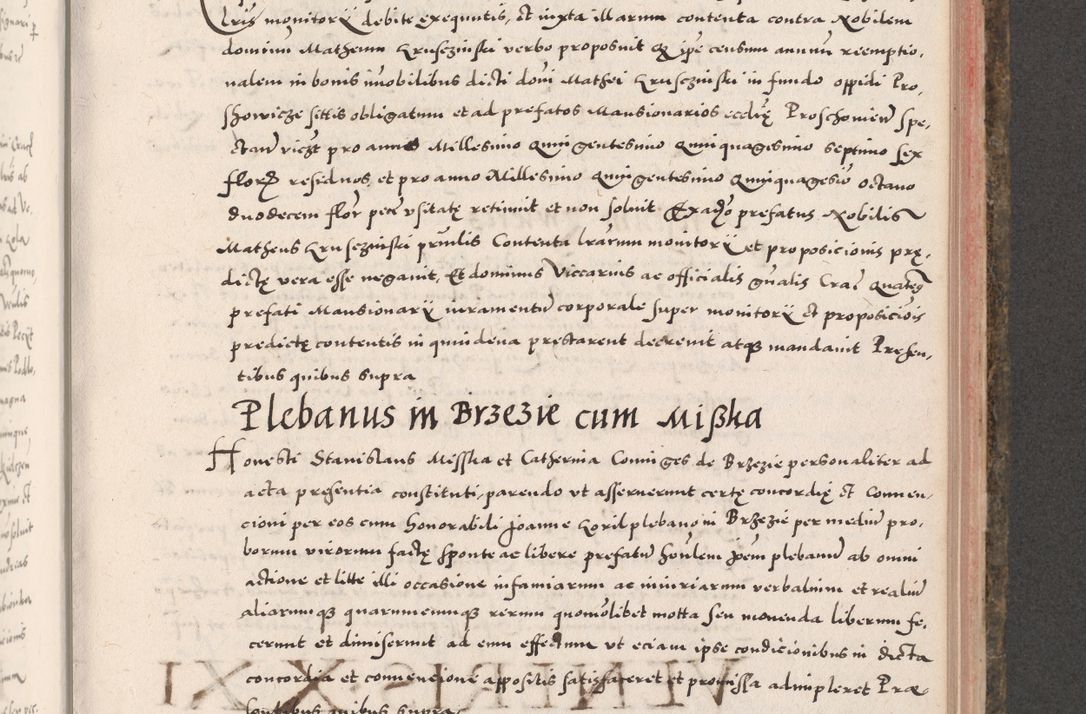 lris monitorÿ debite exequutis, et iuxta illarum contenta contra Nobilem
dominū Matheum Krusczinski verbo proposuit Q ipe censum annuū reemptio,
nalem in bonis imobilibus dicti dōni Mathei Krusczinski in fundo oppidi Pro,
showicze sitis obligatum et ad prefatos Mansionarios ecclię Proschowieñ spe,
ctañ viczt pro anno Millesimo Quingentesimo Quinquagesimo septimo sex
florz residuos, et pro anno Millesimo Quingentesimo Quinquagesiō octauo
duodecem flor pecē vsitatę retinuit et non soluit Ex aduo prefatus Nobilis
Matheus Krusczinski prīnlis Contenta lrarum monitorÿ et proposicionis prę,
dictę vera esse negauit, Et dominus Viccarius ac officialis gñalis Cra Quateq
prefati Mansionarÿ iuramentū corporale super monitorÿ et proposiciōis
predictę contentis in quindena prestarent decreuit atqz mandauit Presen,
tibus quibus supra
Plebanus in Brzezie cum Mißka
Honesti Stanislaus Misska et Catherina Coniuges de Brzezie personaliter ad
acta presentia constituti, parendo vt asseruerunt certę concordię et Conuen,
cioni per eos cum honorabili Joanne Koril plebano in Brzezie per mediū pro,
borum virorum factę sponte ac libere prefatū honlem Joem plebanū ab omni
actione et litte illi occasione infamiarum ac iniuriarum verbalium et realiū
aliarumqz quarumcumqz rerum quomōlibet motta seu mouenda liberum fe,
cerunt et dimiserunt ad eum effectum vt eciam ipse condicionibus in dicta
concordia et conuencione appositis satisfaceret et promissa adimpleret Præ
sentibus quibus supra